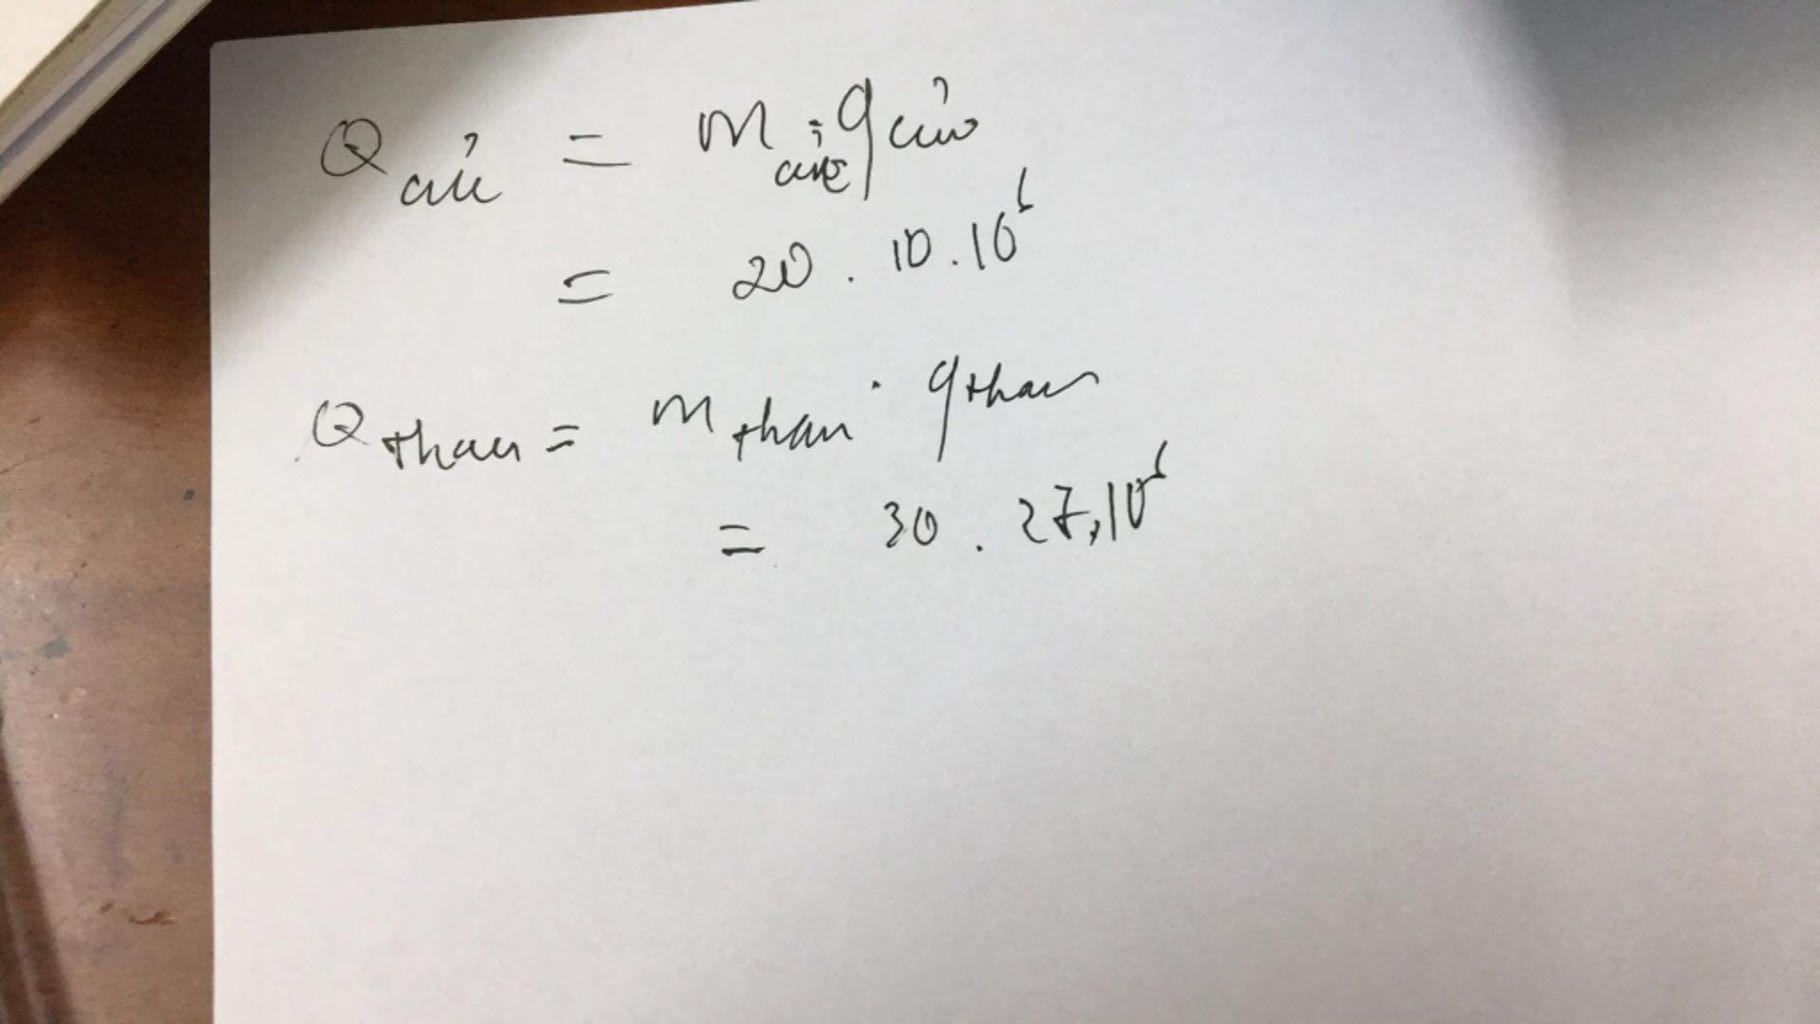 Q củi = m củi . q củi
= 20 . 10 . 10⁶
Q than = m than . q than
= 30 . 27.10⁶